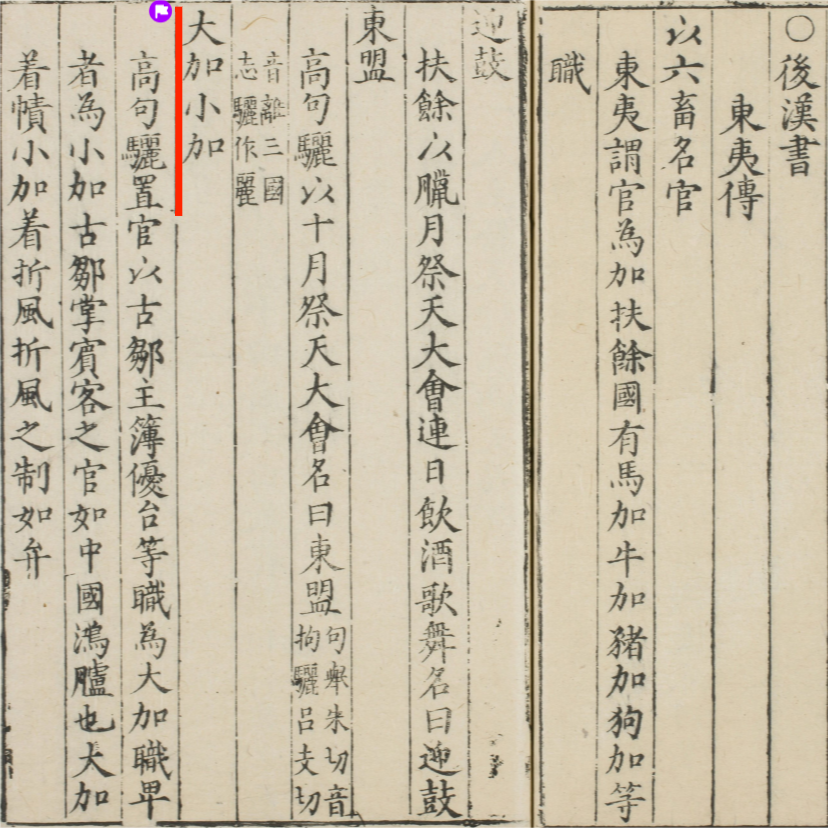 ○後漢書
東夷傳
以六畜名官
東夷謂官為加扶餘國有馬加牛加豬加狗加等
職
迎鼓
扶餘以臘月祭天大會連日飲酒歌舞名曰迎鼓
東盟
高句驪以十月祭天大會名曰東盟句舉朱切音拘驪呂支切
音離三國志驪作麗
大加小加
高句驪置官以古鄒主簿優台等職為大加職卑
者為小加古鄒掌賓客之官如中國鴻臚也大加
着幘小加着折風折風之制如弁